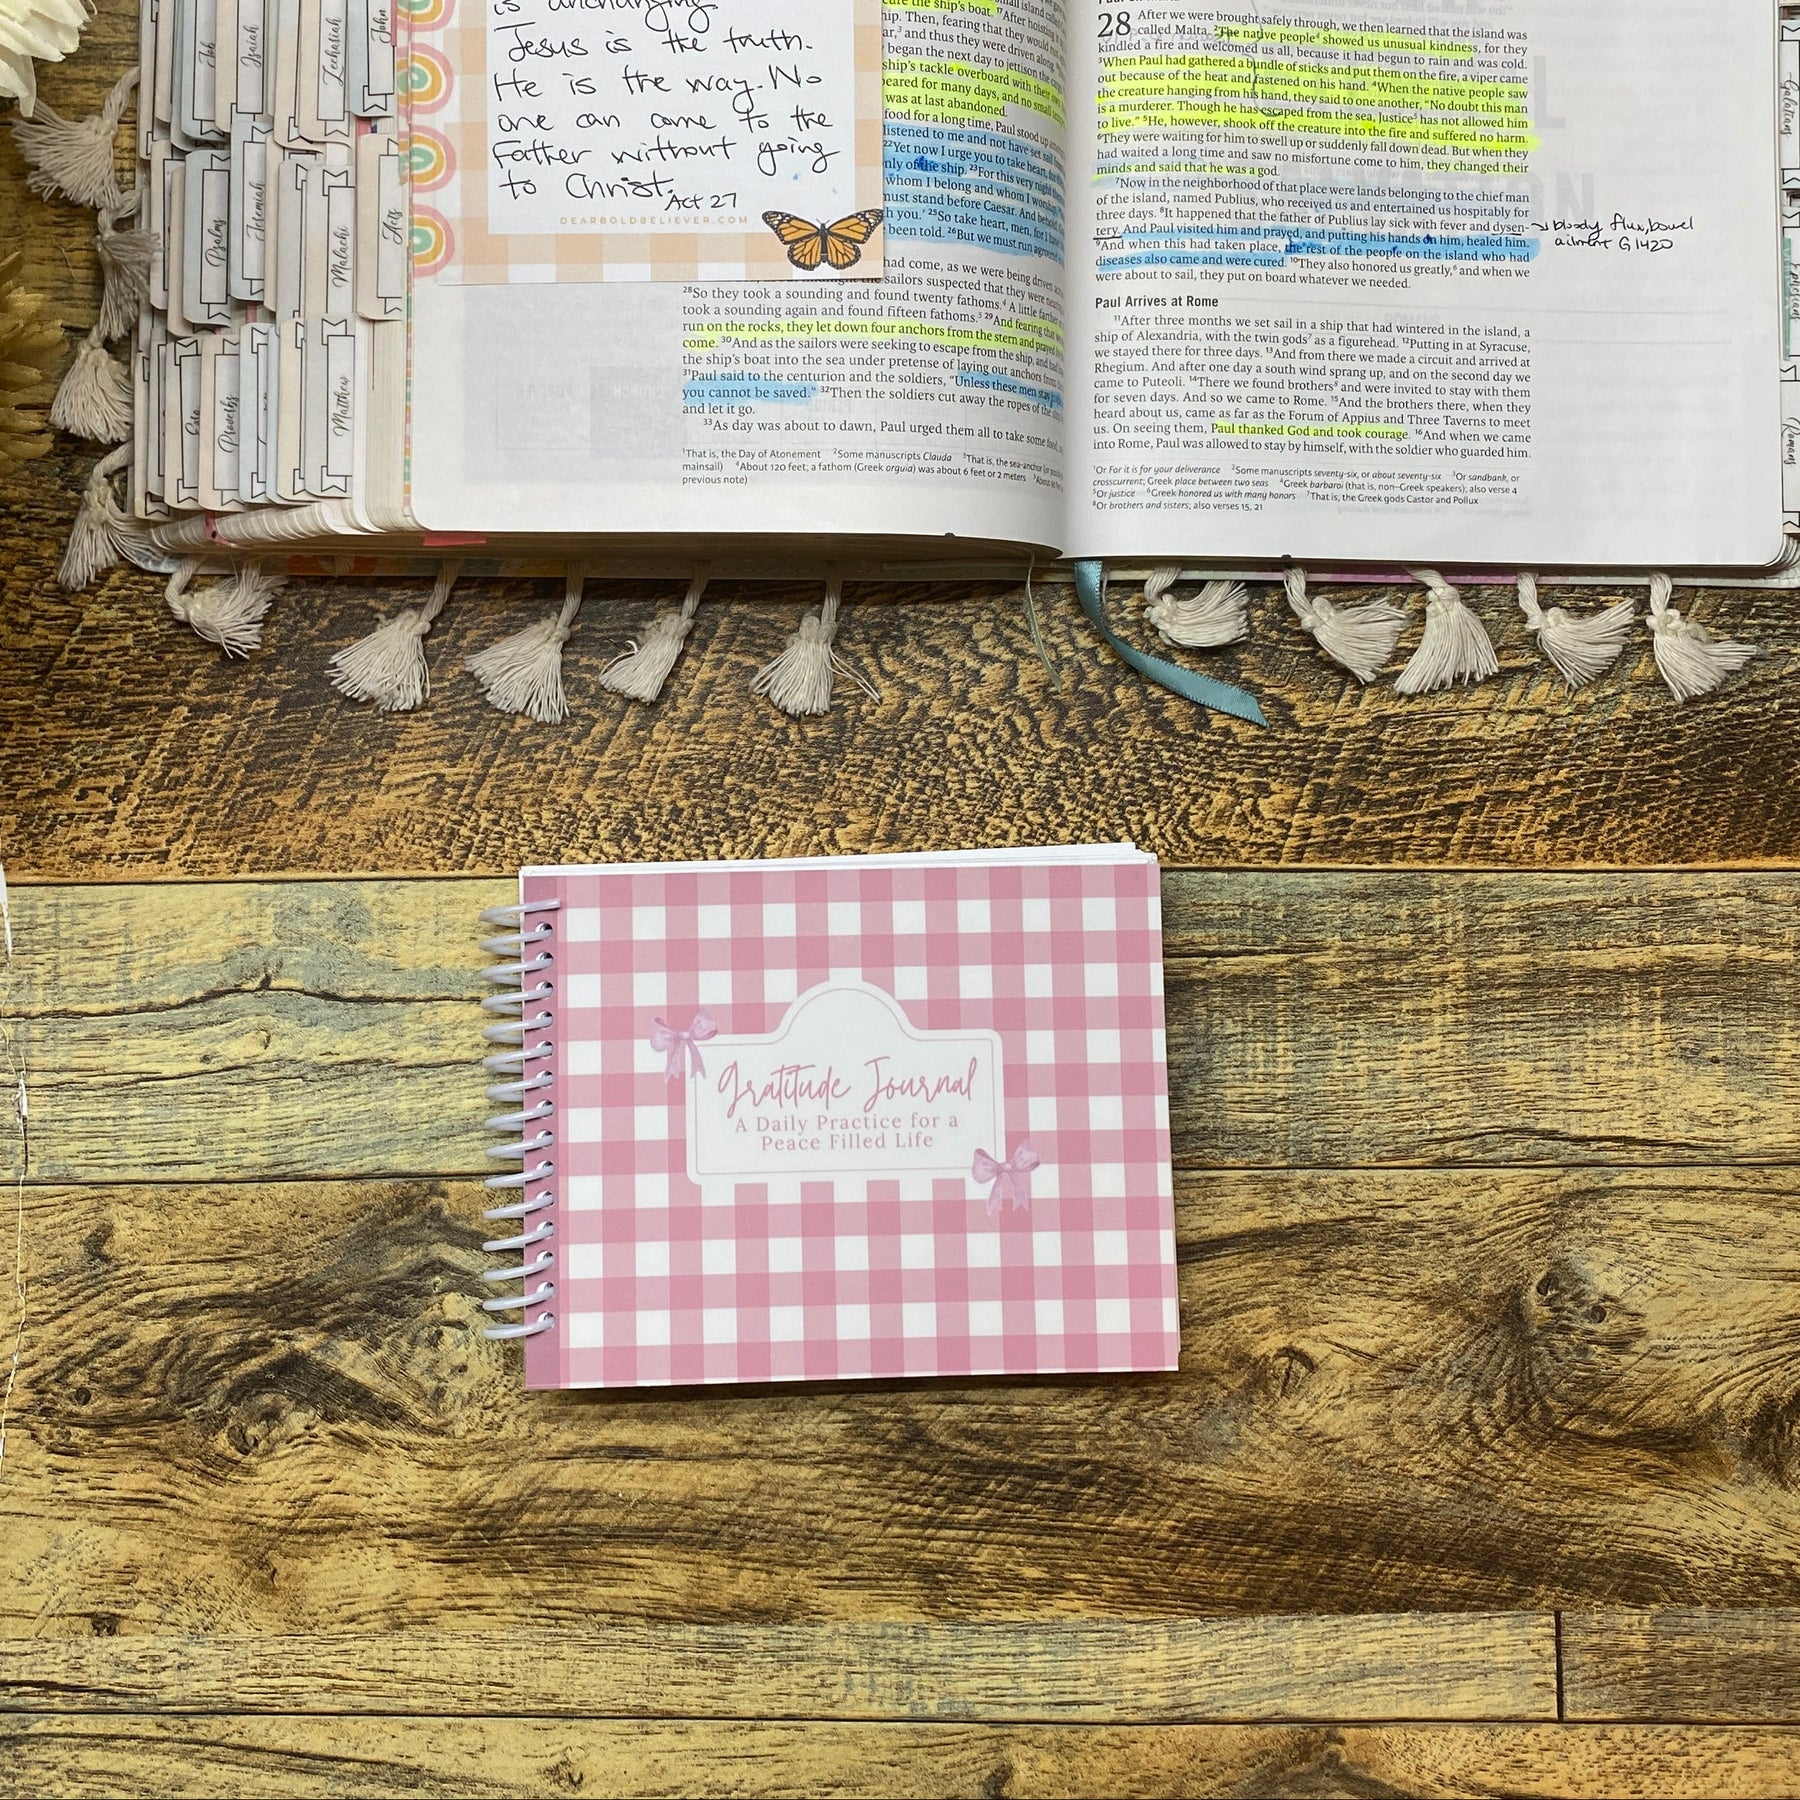 Job
Isaiah
Zechariah
John
Psalms
Jeremiah
Malachi
Acts
Ezra
Proverbs
Matthew
is unchanging.
Jesus is the truth.
He is the way. No
one can come to the
Father without going
to Christ.
Act 27
DEARBOLDBELIEVER.COM
the ship's boat. ¹⁷After hoisting
Then, fearing that they would
and thus they were driven along.
began the next day to jettison the
ship's tackle overboard with their
for many days, and no small
was at last abandoned.
food for a long time, Paul stood up
listened to me and not have set sail
²²Yet now I urge you to take heart,
of the ship. ²³For this very night
whom I belong and whom I worship,
must stand before Caesar. And behold,
you.’ ²⁵So take heart, men, for I
been told. ²⁶But we must run aground
had come, as we were being driven
sailors suspected that they were
²⁸So they took a sounding and found twenty fathoms.⁴ A little farther
took a sounding again and found fifteen fathoms.⁵ ²⁹And fearing that
run on the rocks, they let down four anchors from the stern and prayed
come. ³⁰And as the sailors were seeking to escape from the ship, and had
the ship's boat into the sea under pretense of laying out anchors from
³¹Paul said to the centurion and the soldiers, “Unless these men stay
you cannot be saved.” ³²Then the soldiers cut away the ropes of the
and let it go.
³³As day was about to dawn, Paul urged them all to take some food,
¹That is, the Day of Atonement ²Some manuscripts Clauda ³That is, the sea-anchor (or
mainsail) ⁴About 120 feet; a fathom (Greek orguia) was about 6 feet or 2 meters
previous note)
28 After we were brought safely through, we then learned that the island was
called Malta. ²The native people⁴ showed us unusual kindness, for they
kindled a fire and welcomed us all, because it had begun to rain and was cold.
³When Paul had gathered a bundle of sticks and put them on the fire, a viper came
out because of the heat and fastened on his hand. ⁴When the native people saw
the creature hanging from his hand, they said to one another, “No doubt this man
is a murderer. Though he has escaped from the sea, Justice⁵ has not allowed him
to live.” ⁵He, however, shook off the creature into the fire and suffered no harm.
⁶They were waiting for him to swell up or suddenly fall down dead. But when they
had waited a long time and saw no misfortune come to him, they changed their
minds and said that he was a god.
⁷Now in the neighborhood of that place were lands belonging to the chief man
of the island, named Publius, who received us and entertained us hospitably for
three days. ⁸It happened that the father of Publius lay sick with fever and dysen-
tery. And Paul visited him and prayed, and putting his hands on him, healed him.
⁹And when this had taken place, the rest of the people on the island who had
diseases also came and were cured. ¹⁰They also honored us greatly,⁶ and when we
were about to sail, they put on board whatever we needed.
bloody flux, bowel
ailment G1420
Paul Arrives at Rome
¹¹After three months we set sail in a ship that had wintered in the island, a
ship of Alexandria, with the twin gods⁷ as a figurehead. ¹²Putting in at Syracuse,
we stayed there for three days. ¹³And from there we made a circuit and arrived at
Rhegium. And after one day a south wind sprang up, and on the second day we
came to Puteoli. ¹⁴There we found brothers⁸ and were invited to stay with them
for seven days. And so we came to Rome. ¹⁵And the brothers there, when they
heard about us, came as far as the Forum of Appius and Three Taverns to meet
us. On seeing them, Paul thanked God and took courage. ¹⁶And when we came
into Rome, Paul was allowed to stay by himself, with the soldier who guarded him.
¹Or For it is for your deliverance ²Some manuscripts seventy-six, or about seventy-six ³Or sandbank, or
crosscurrent; Greek place between two seas ⁴Greek barbaroi (that is, non–Greek speakers); also verse 4
⁵Or justice ⁶Greek honored us with many honors ⁷That is, the Greek gods Castor and Pollux
⁸Or brothers and sisters; also verses 15, 21
Galatians
Ephesians
Romans
Gratitude Journal
A Daily Practice for a
Peace Filled Life